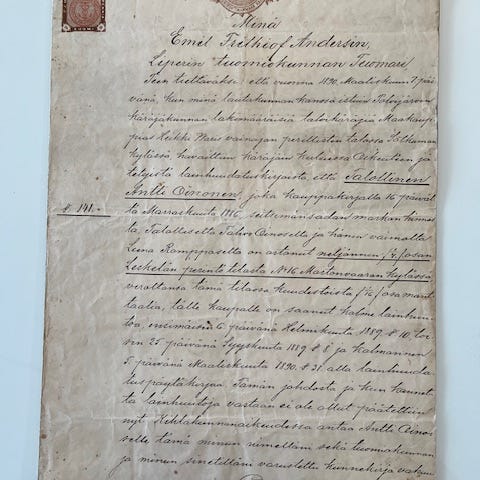 Minä
Emil Frithiof Andersin,
Liperin tuomiokunnan Tuomari
Teen tiettäväksi: että vuonna 1890 Maaliskuun 7 päi-
vänä, kun minä lautakunnan kanssa istuin Palojärven
käräjäkunnan lakimääräisiä talvikäräjiä Maakaup-
pias Heikki vainajan perillisten talossa Sotkuman
kylässä havaittiin käräjäin kuluessa Oikeuden
lainhuudatuskirjoista että Talollinen
Antti Oinonen, joka kauppakirjalla 16 päivältä
§. 141.
tä Marraskuuta 1886, seitsemänsadan markan hinnas-
ta, Talolliselta Oinoselta ja hänen vaimolta
Leena Ramppaselta on ostanut neljännen /¼/ osan
Leskelän perintö talosta No 16 Martonvaaran kylässä
verollansa tämä talossa kuudestoista /1/16/ osa mant-
taalia, tälle kaupalle on saanut kolme lainhuu-
toa, ensimäisen 6 päivänä Helmikuuta 1889 § 10, toi-
sen 25 päivänä Syyskuuta 1889 § 8 ja kolmannen
5 päivänä Maaliskuuta 1890 § 31 alla lainhuuda-
tuspöytäkirjaa. Tämän johdosta ja kun
lainhuutoja vastaan ei ole ollut päätettiin
nyt Kihlakunnanoikeudessa antaa Antti Oino-
selle tämä minun nimelläni sekä tuomiokunnan
ja minun sinetilläni varustettu kiinnekirja